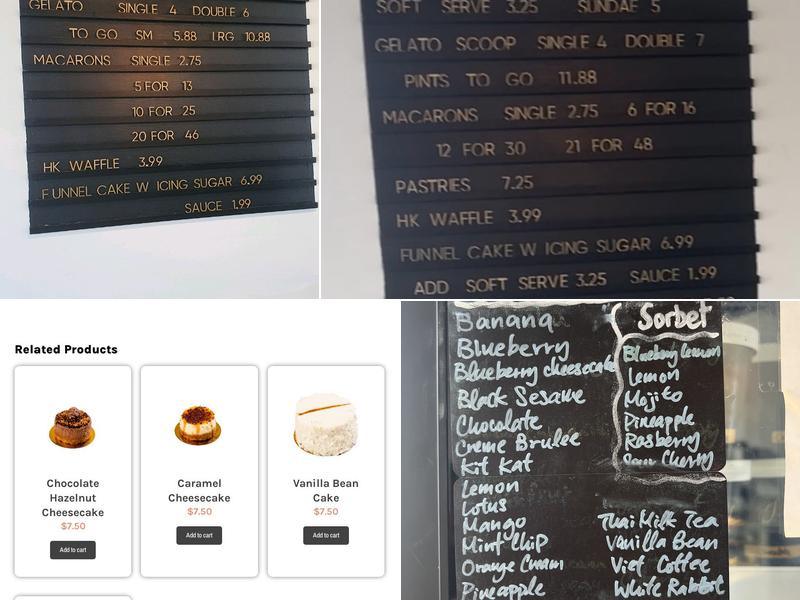 GELATO SINGLE 4 DOUBLE 6
TO GO SM 5.88 LRG 10.88
MACARONS SINGLE 2.75
5 FOR 13
10 FOR 25
20 FOR 46
HK WAFFLE 3.99
FUNNEL CAKE W ICING SUGAR 6.99
SAUCE 1.99
SOFT SERVE 3.25 SUNDAE 5
GELATO SCOOP SINGLE 4 DOUBLE 7
PINTS TO GO 11.88
MACARONS SINGLE 2.75 6 FOR 16
12 FOR 30 21 FOR 48
PASTRIES 7.25
HK WAFFLE 3.99
FUNNEL CAKE W ICING SUGAR 6.99
ADD SOFT SERVE 3.25 SAUCE 1.99
Related Products
Chocolate
Hazelnut
Cheesecake
$7.50
Add to cart
Caramel
Cheesecake
$7.50
Add to cart
Vanilla Bean
Cake
$7.50
Add to cart
Banana
Blueberry
Blueberry cheesecake
Black Sesame
Chocolate
Creme Brulee
Kit Kat
Lemon
Lotus
Mango
Mint Chip
Orange Cream
Pineapple
Sorbet
Blueberry Lemon
Lemon
Mojito
Pineapple
Rasberry
Sour Cherry
Thai Milk Tea
Vanilla Bean
Viet Coffee
White Rabbit